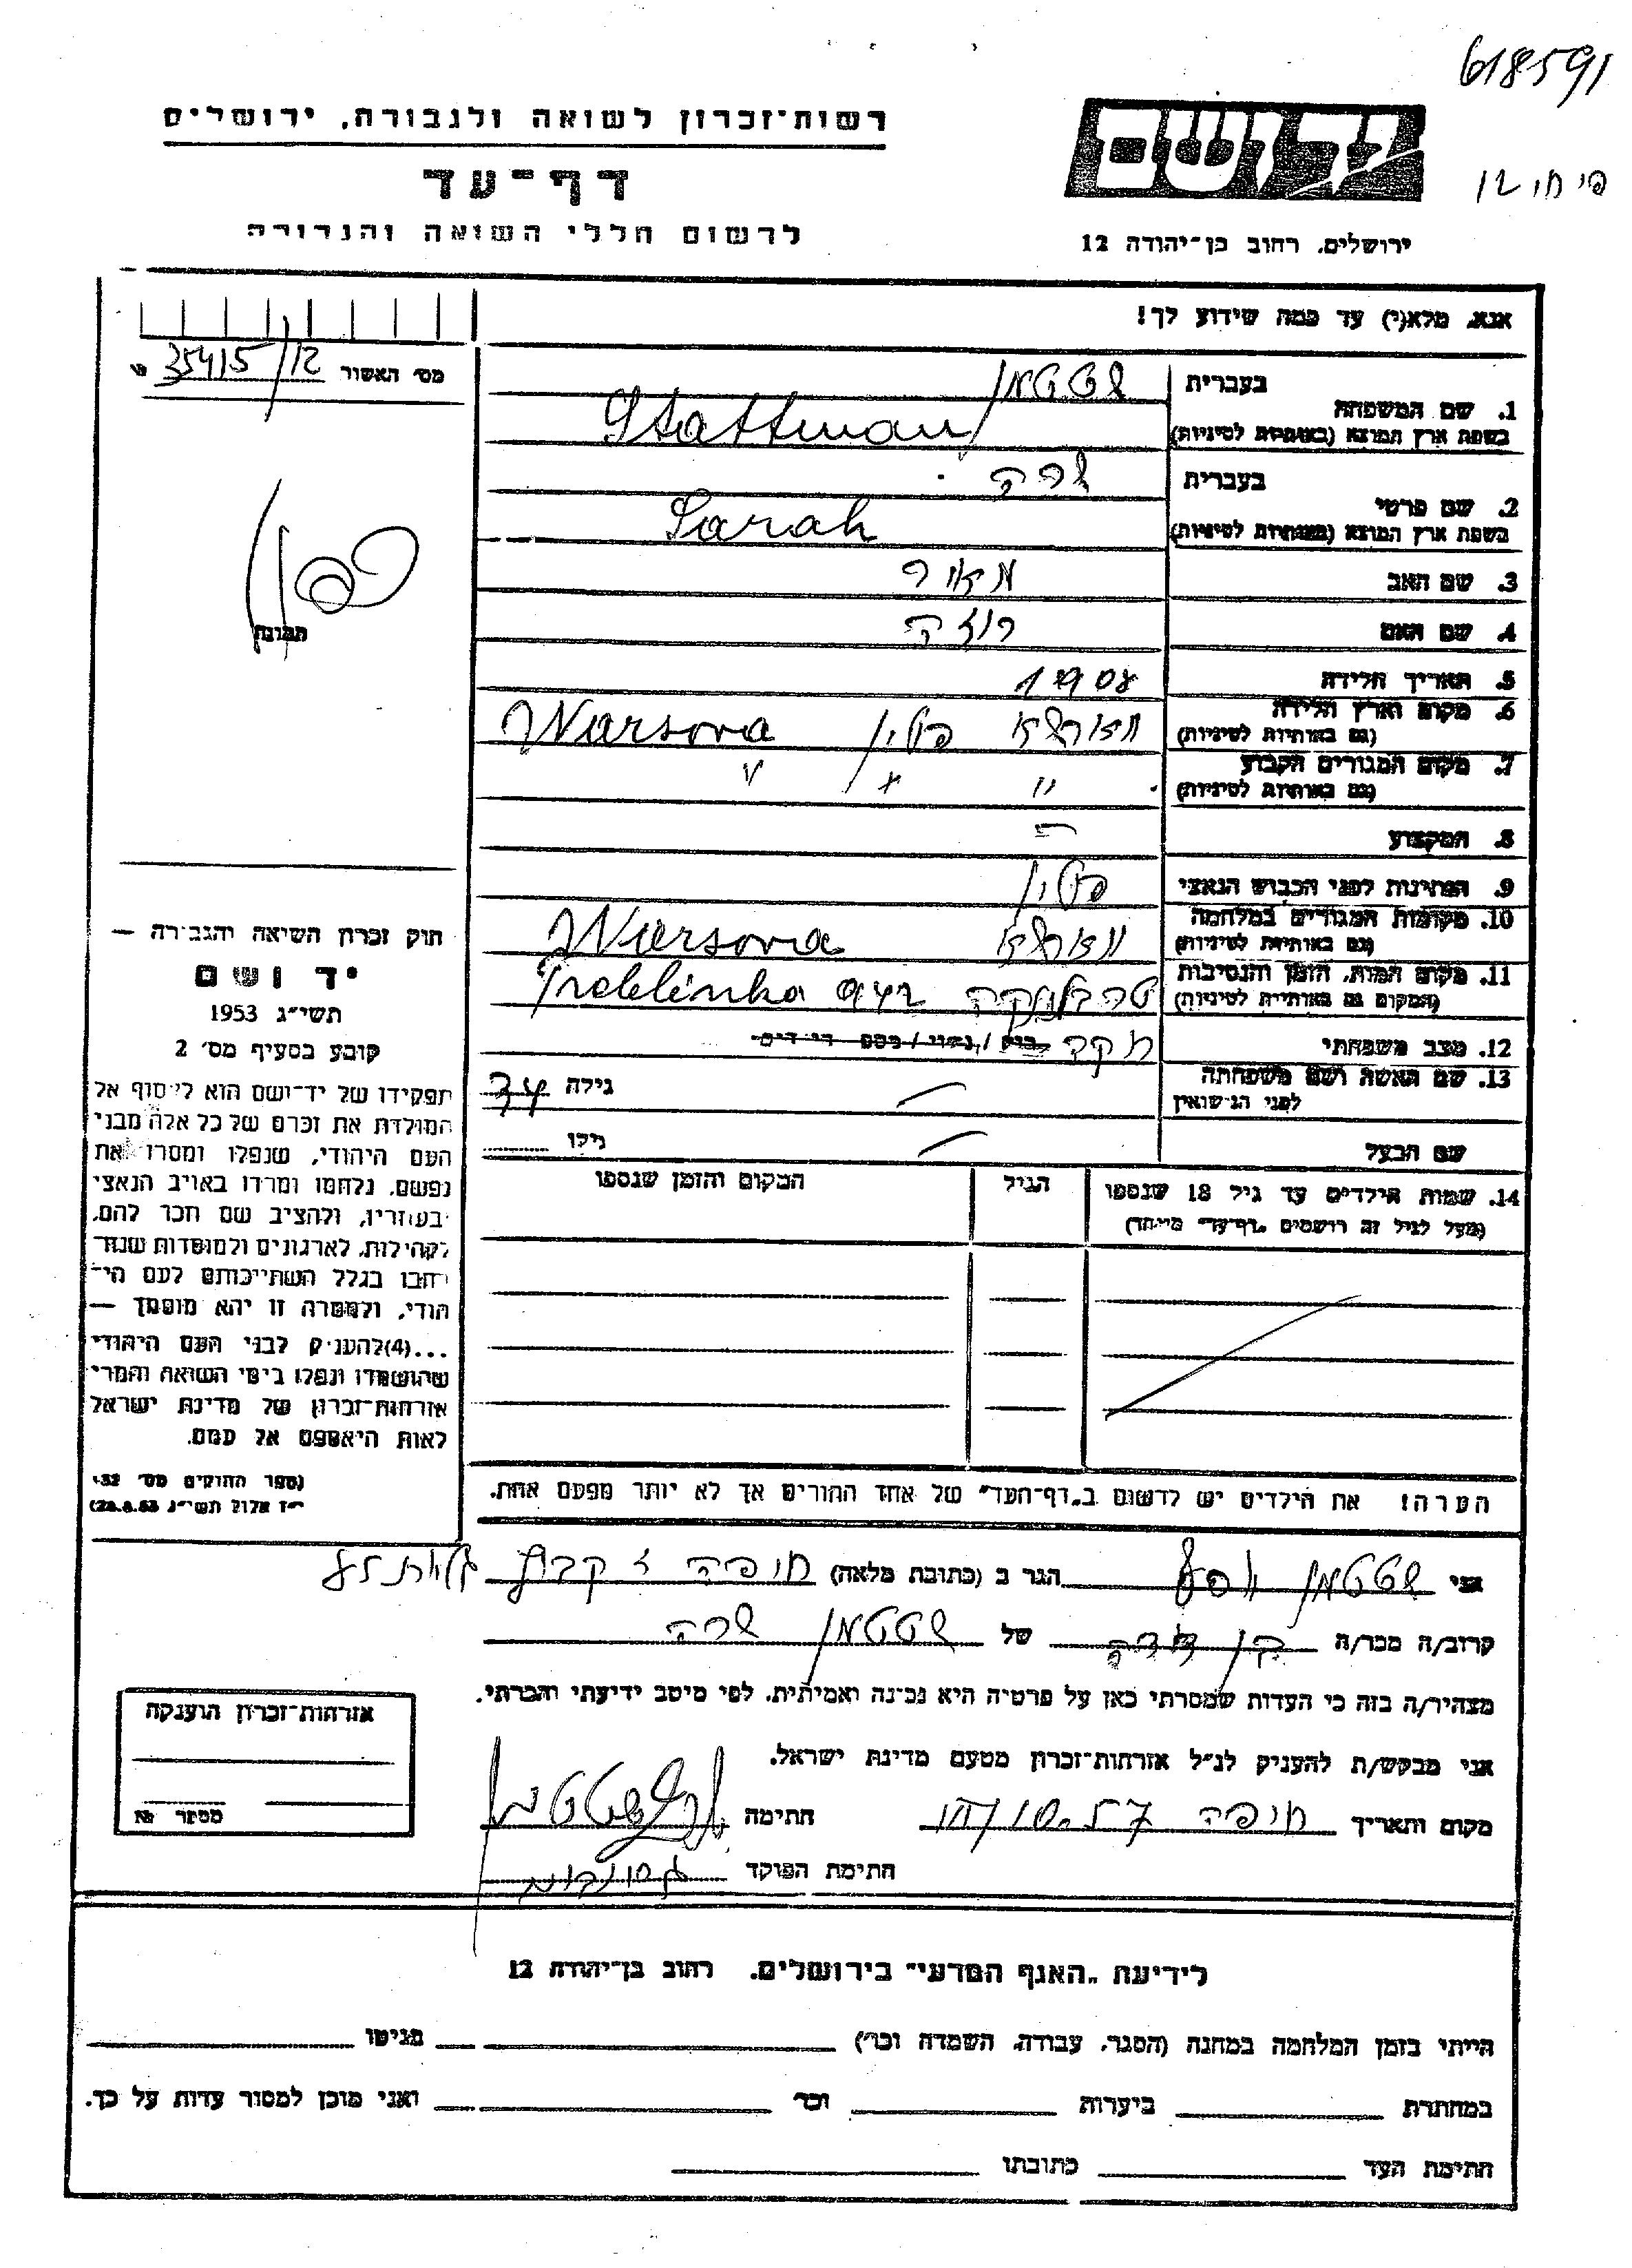 618591
רשות־זכרון לשואה ולגבורה, ירושלים
דף־עד
לרשום חללי השואה והגבורה
ירושלים, רחוב בן־יהודה 12
אנא, מלא(י) עד כמה שידוע לך!
מס׳ האשור 35415/12
1. שם המשפחה
בעברית שטטמן
בשפת ארץ המוצא (באותיות לטיניות) Stattman
2. שם פרטי
בעברית שרה
בשפת ארץ המוצא (באותיות לטיניות) Sarah
3. שם האב מאיר
4. שם האם רוזה
5. תאריך הלידה 1908
6. מקום וארץ הלידה
(גם באותיות לטיניות) פולין Warsova
7. מקום המגורים הקבוע
(גם באותיות לטיניות) " " "
8. המקצוע
9. הנתינות לפני הכבוש הנאצי פולין
10. מקומות המגורים במלחמה
(גם באותיות לטיניות) Warsova
11. מקום המות, הזמן והנסיבות
(המקום גם באותיות לטיניות) טרבלינקה 942 Treblinka
12. מצב משפחתי
13. שם האשה ושם משפחתה
לפני הנישואין
גילה 34
שם הבעל
גילו
14. שמות הילדים עד גיל 18 שנספו
(מעל לגיל זה רושמים „דף־עד" מיוחד)
הגיל
המקום והזמן שנספו
תמונה
חוק זכרון השואה והגבורה —
יד ושם
תשי״ג 1953
קובע בסעיף מס׳ 2
תפקידו של יד־ושם הוא לאסוף אל
המולדת את זכרם של כל אלה מבני
העם היהודי, שנפלו ומסרו את
נפשם, נלחמו ומרדו באויב הנאצי
ובעוזריו, ולהציב שם וזכר להם,
לקהילות, לארגונים ולמוסדות שנח־
רבו בגלל השתייכותם לעם הי־
הודי, ולמטרה זו יהא מוסמך —
...(4)להעניק לבני העם היהודי
שהושמדו ונפלו בימי השואה והמרי
אזרחות־זכרון של מדינת ישראל
לאות היאספם אל עמם.
(ספר החוקים מס׳ 132
י״ז אלול תשי״ג 28.8.53)
הערה! את הילדים יש לרשום ב„דף־העד" של אחד ההורים אך לא יותר מפעם אחת.
אני שטטמן יוסף הגר ב (כתובת מלאה) חיפה
קרוב/ה מכר/ה בן דודה של שטטמן שרה
מצהיר/ה בזה כי העדות שמסרתי כאן על פרטיה היא נכונה ואמיתית, לפי מיטב ידיעתי והכרתי.
אני מבקש/ת להעניק לנ״ל אזרחות־זכרון מטעם מדינת ישראל.
מקום ותאריך חיפה חתימה
חתימת הפוקד
אזרחות־זכרון הוענקה
מספר №
לידיעת „האגף המדעי" בירושלים, רחוב בן־יהודה 12
הייתי בזמן המלחמה במחנה (הסגר, עבודה, השמדה וכו׳) בגיטו
במחתרת ביערות וכו׳ ואני מוכן למסור עדות על כך.
חתימת העד כתובתו